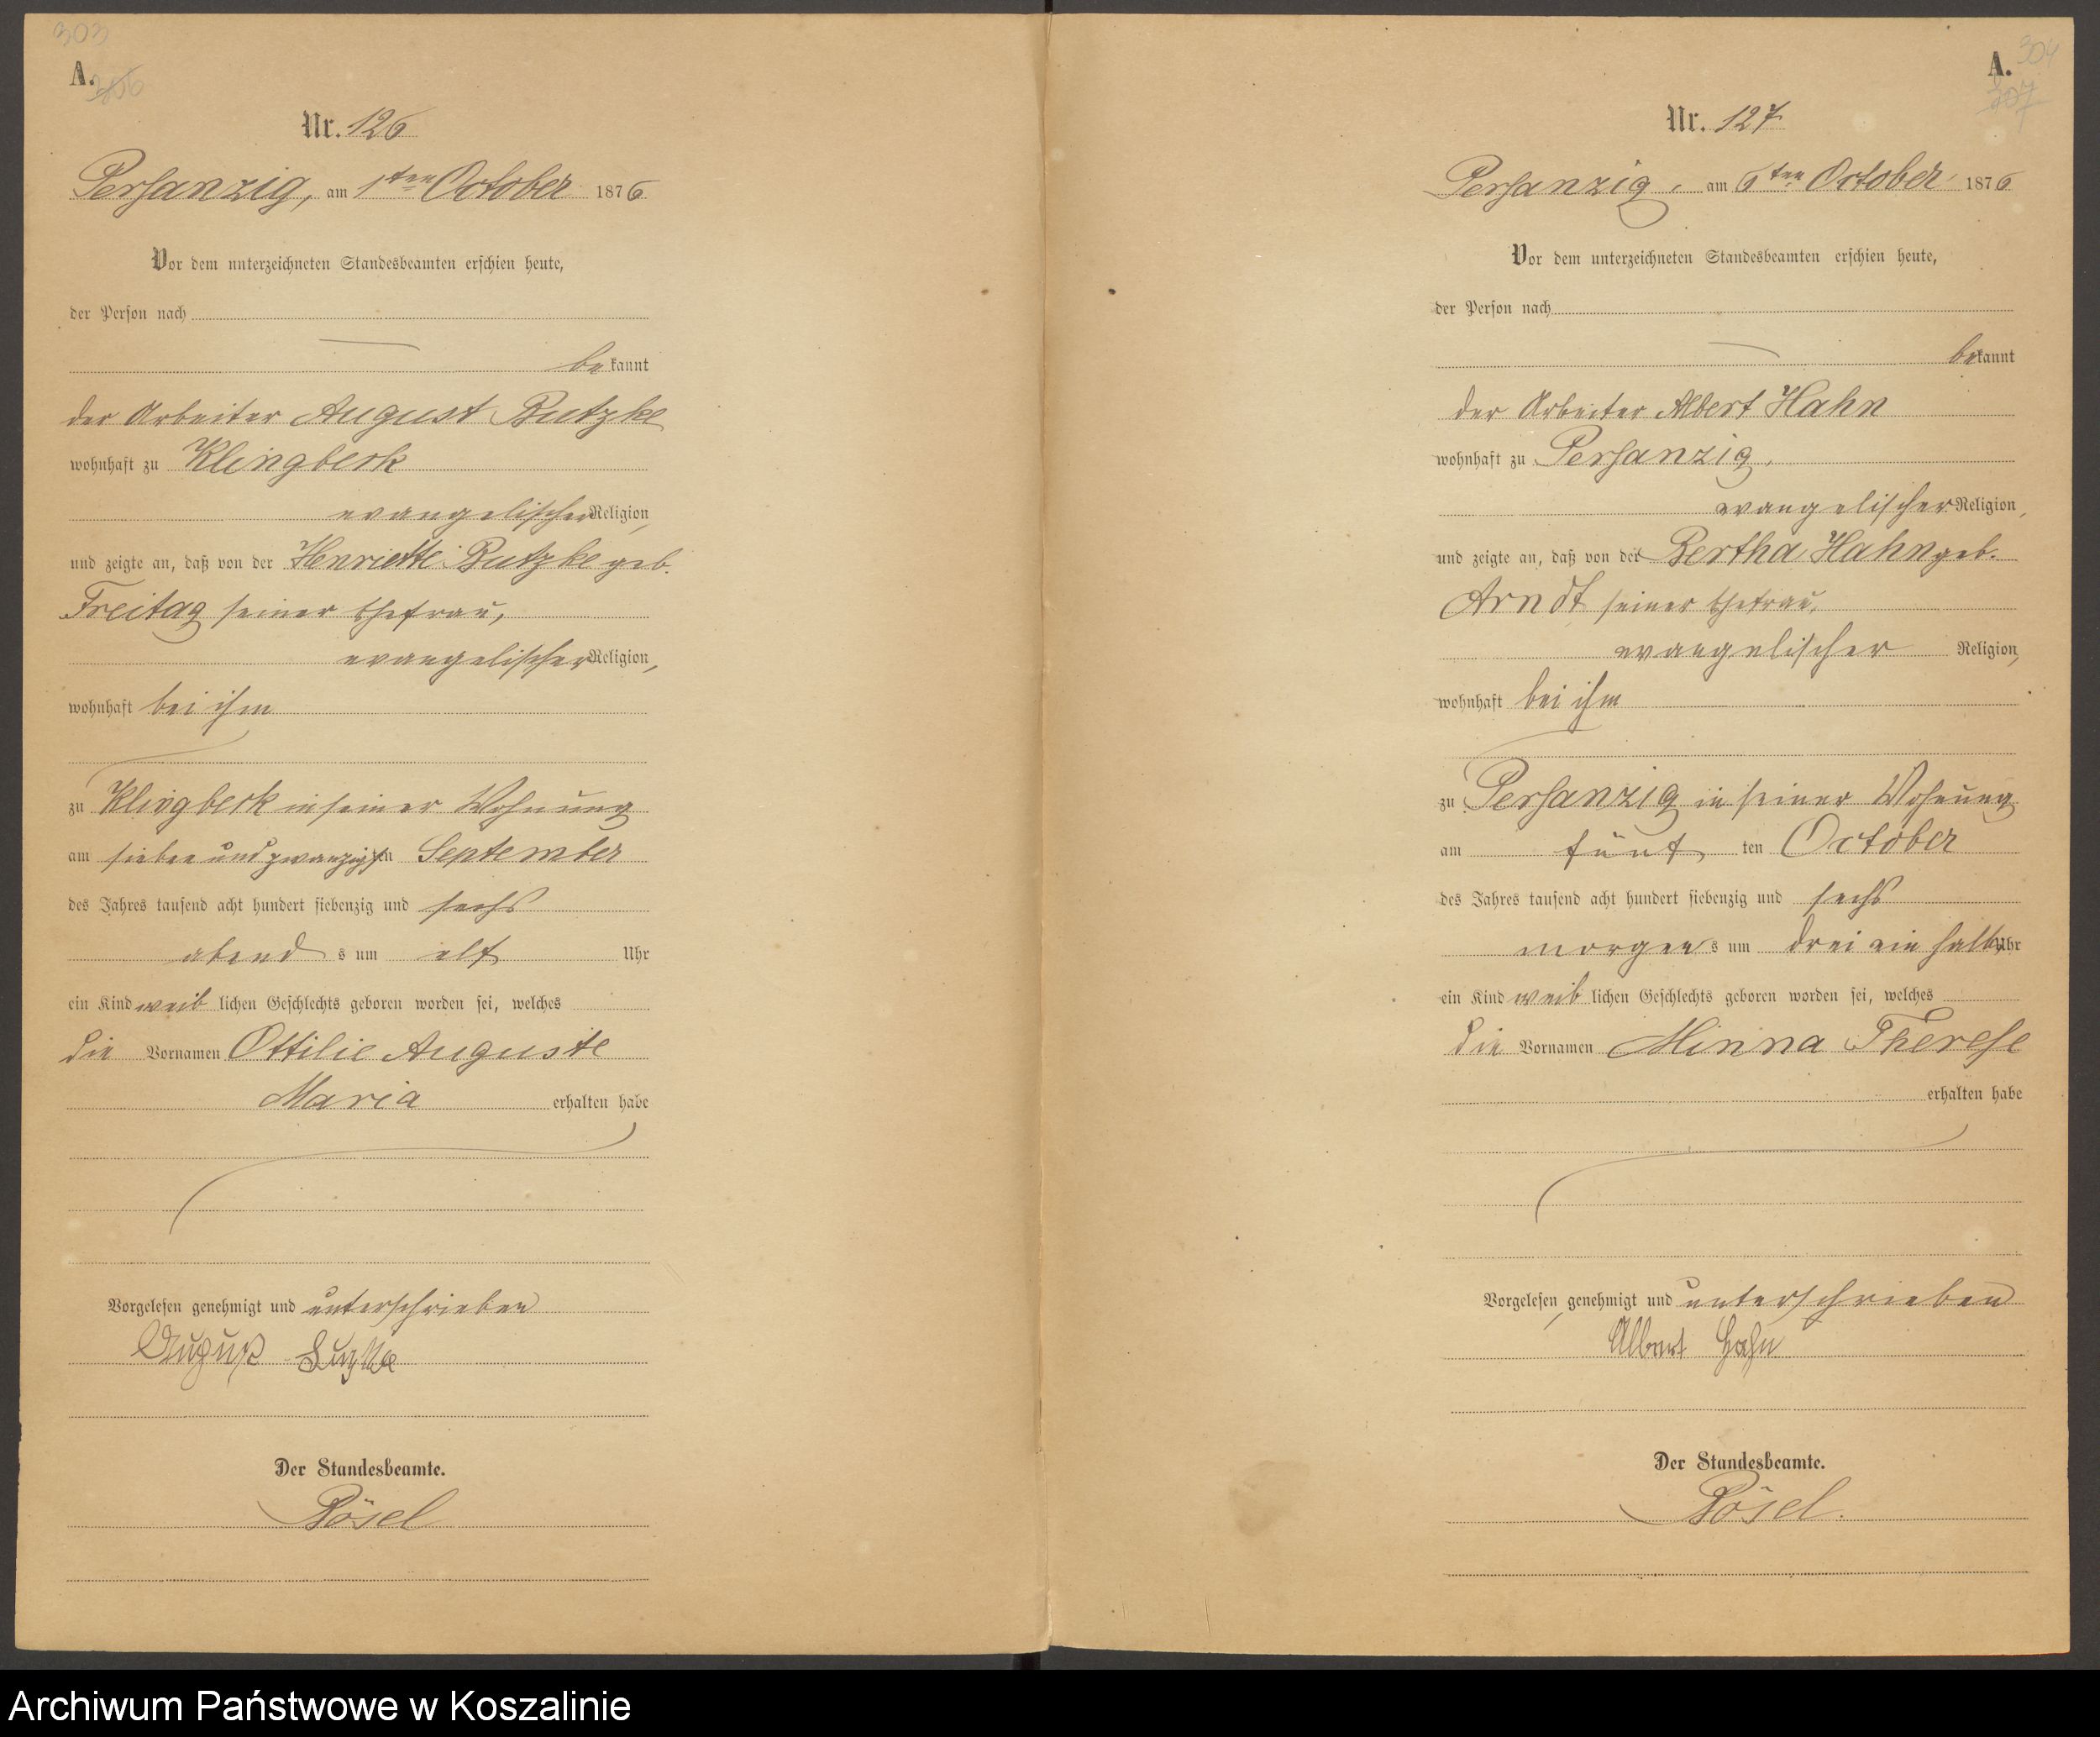 303
A.
306
Nr. 126
Persanzig, am 1ten October 1876
Vor dem unterzeichneten Standesbeamten erschien heute,
der Person nach
bekannt
der Arbeiter August Butzke
wohnhaft zu Klingbeck
evangelischer Religion,
und zeigte an, daß von der Henriette Butzke geb.
Freitag seiner Ehefrau,
evangelischer Religion,
wohnhaft bei ihm
zu Klingbeck in seiner Wohnung
am sieben und zwanzigsten September
des Jahres tausend acht hundert siebenzig und sechs
abends um elf Uhr
ein Kind weiblichen Geschlechts geboren worden sei, welches
die Vornamen Ottilie Auguste
Maria erhalten habe
Vorgelesen genehmigt und unterschrieben
August
Der Standesbeamte.
Pösel
304
A.
307
Nr. 127
Persanzig, am 6ten October 1876
Vor dem unterzeichneten Standesbeamten erschien heute,
der Person nach
bekannt
der Arbeiter Albert Hahn
wohnhaft zu Persanzig,
evangelischer Religion,
und zeigte an, daß von der Bertha Hahn geb.
Arndt seiner Ehefrau,
evangelischer Religion,
wohnhaft bei ihm
zu Persanzig in seiner Wohnung
am fünften October
des Jahres tausend acht hundert siebenzig und sechs
morgens um drei ein halb Uhr
ein Kind weiblichen Geschlechts geboren worden sei, welches
die Vornamen Minna Therese
erhalten habe
Vorgelesen, genehmigt und unterschrieben
Albert Hahn
Der Standesbeamte.
Pösel.
Archiwum Państwowe w Koszalinie